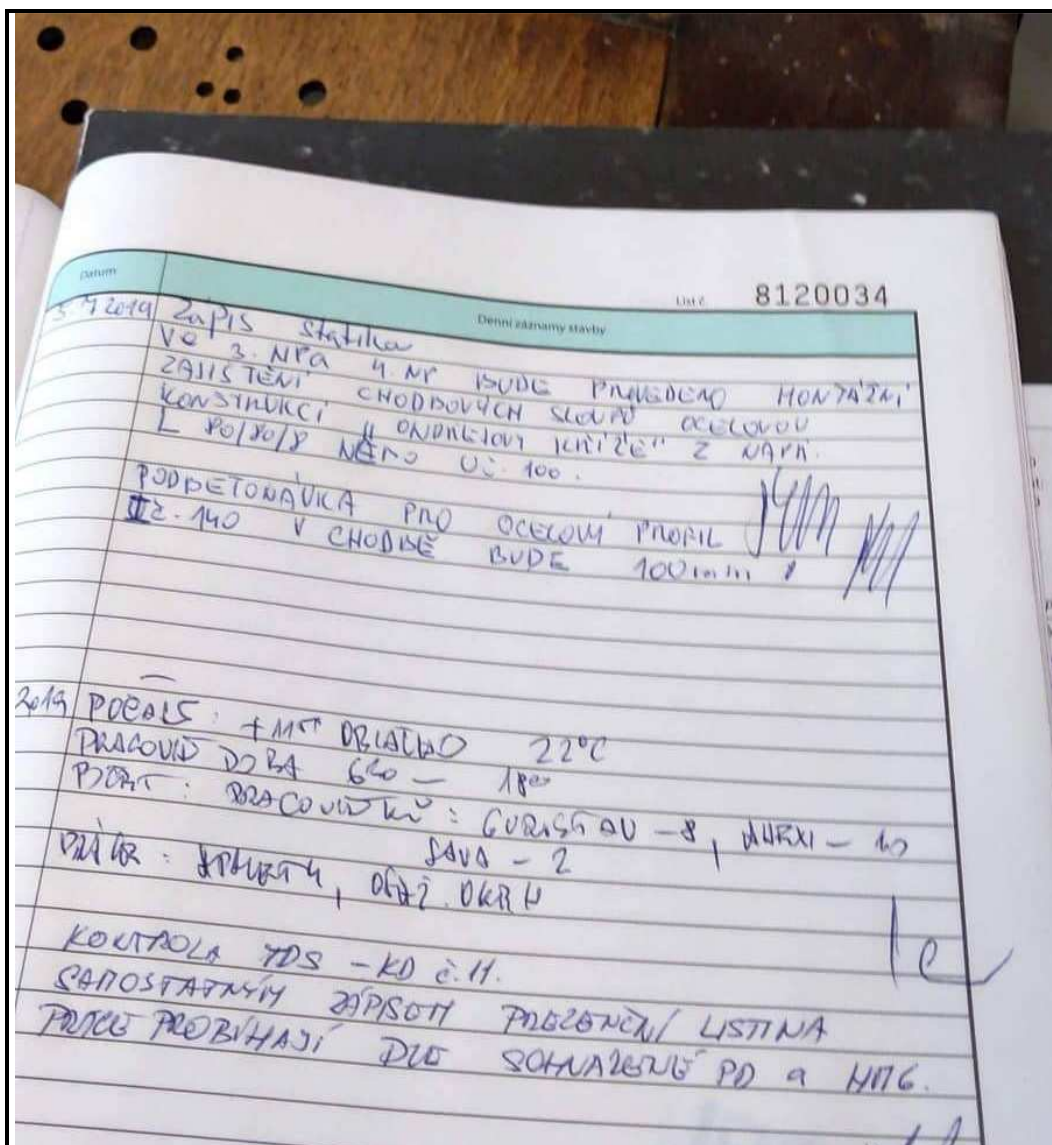 Datum
Denní záznamy stavby
List č. 8120034
5.7 2019 Zápis statika
Ve 3. NP a 4. NP BUDE PROVEDENO MONTÁŽNÍ
ZAJIŠTĚNÍ CHODBOVÝCH SLOUPŮ OCELOVOU
KONSTRUKCÍ "ONDŘEJOVY KŘÍŽE" Z NAPŘ.
L 80/80/8 NEBO UČ. 100.
PODBETONÁVKA PRO OCELOVÝ PROFIL
IČ. 140 V CHODBĚ BUDE 100 mm
2019 POČASÍ: OBLAČNO 22°C
PRACOVNÍ DOBA 6 00 — 18 00
POČET: PRACOVNÍKŮ: — 8, — 10
SAVA — 2
KONTROLA TDS - KD č. 11.
SAMOSTATNÝM ZÁPISEM PREZENČNÍ LISTINA
PRÁCE PROBÍHAJÍ DLE SCHVÁLENÉ PD a HMG.